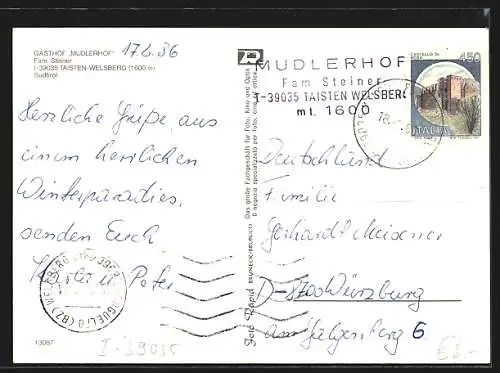 GASTHOF „MUDLERHOF"
Fam Steiner
I-39035 TAISTEN-WELSBERG (1600 m)
Südtirol
17.2.86
Herzliche Grüße aus
einem herrlichen
Winterparadies,
senden Euch
u. Peter
13087
I-39035
Das große Fachgeschäft für Foto, Kino und Optik
Il negozio specializzato per foto, cine ed ottica
Foto Rapid BRUNECK/BRUNICO
MUDLERHOF
Fam Steiner
I-39035 TAISTEN WELSBERG
mt. 1600
450
ITALIA
Deutschland
Familie
Gerhardt Meisner
D-8700 Würzburg
am Galgenberg 6
€3,-